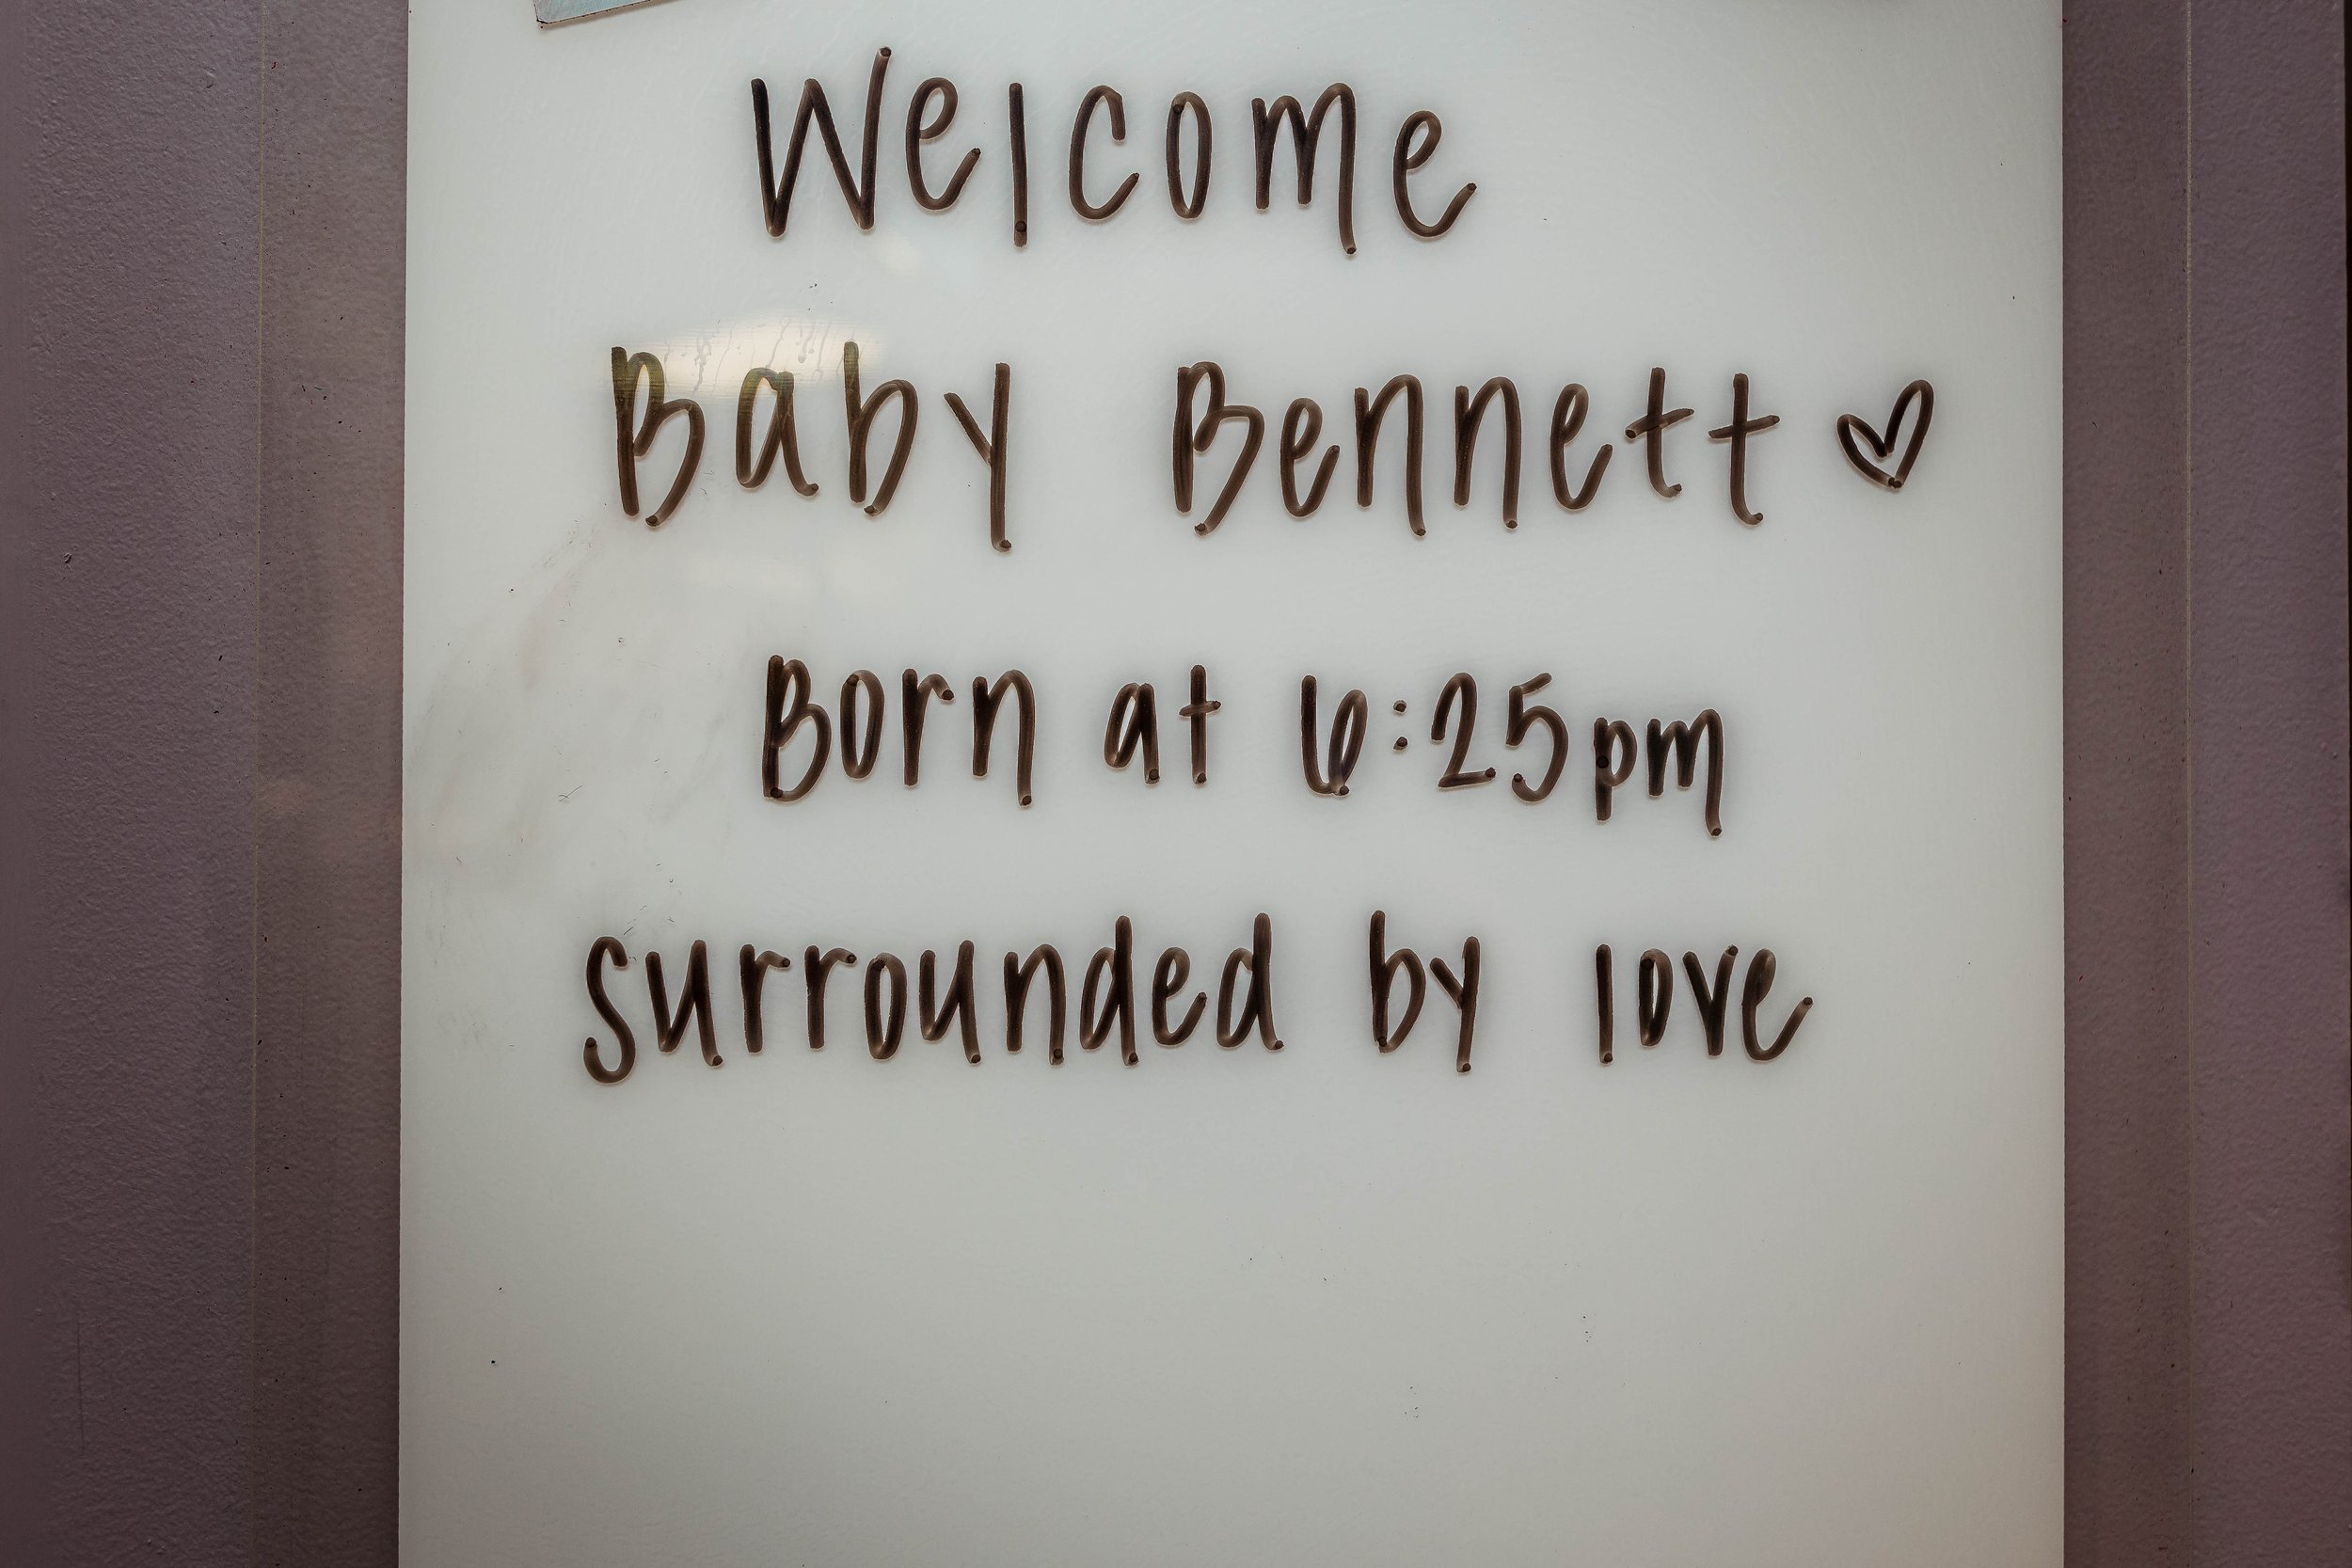 Welcome
Baby Bennett ♡
Born at 6:25pm
surrounded by love